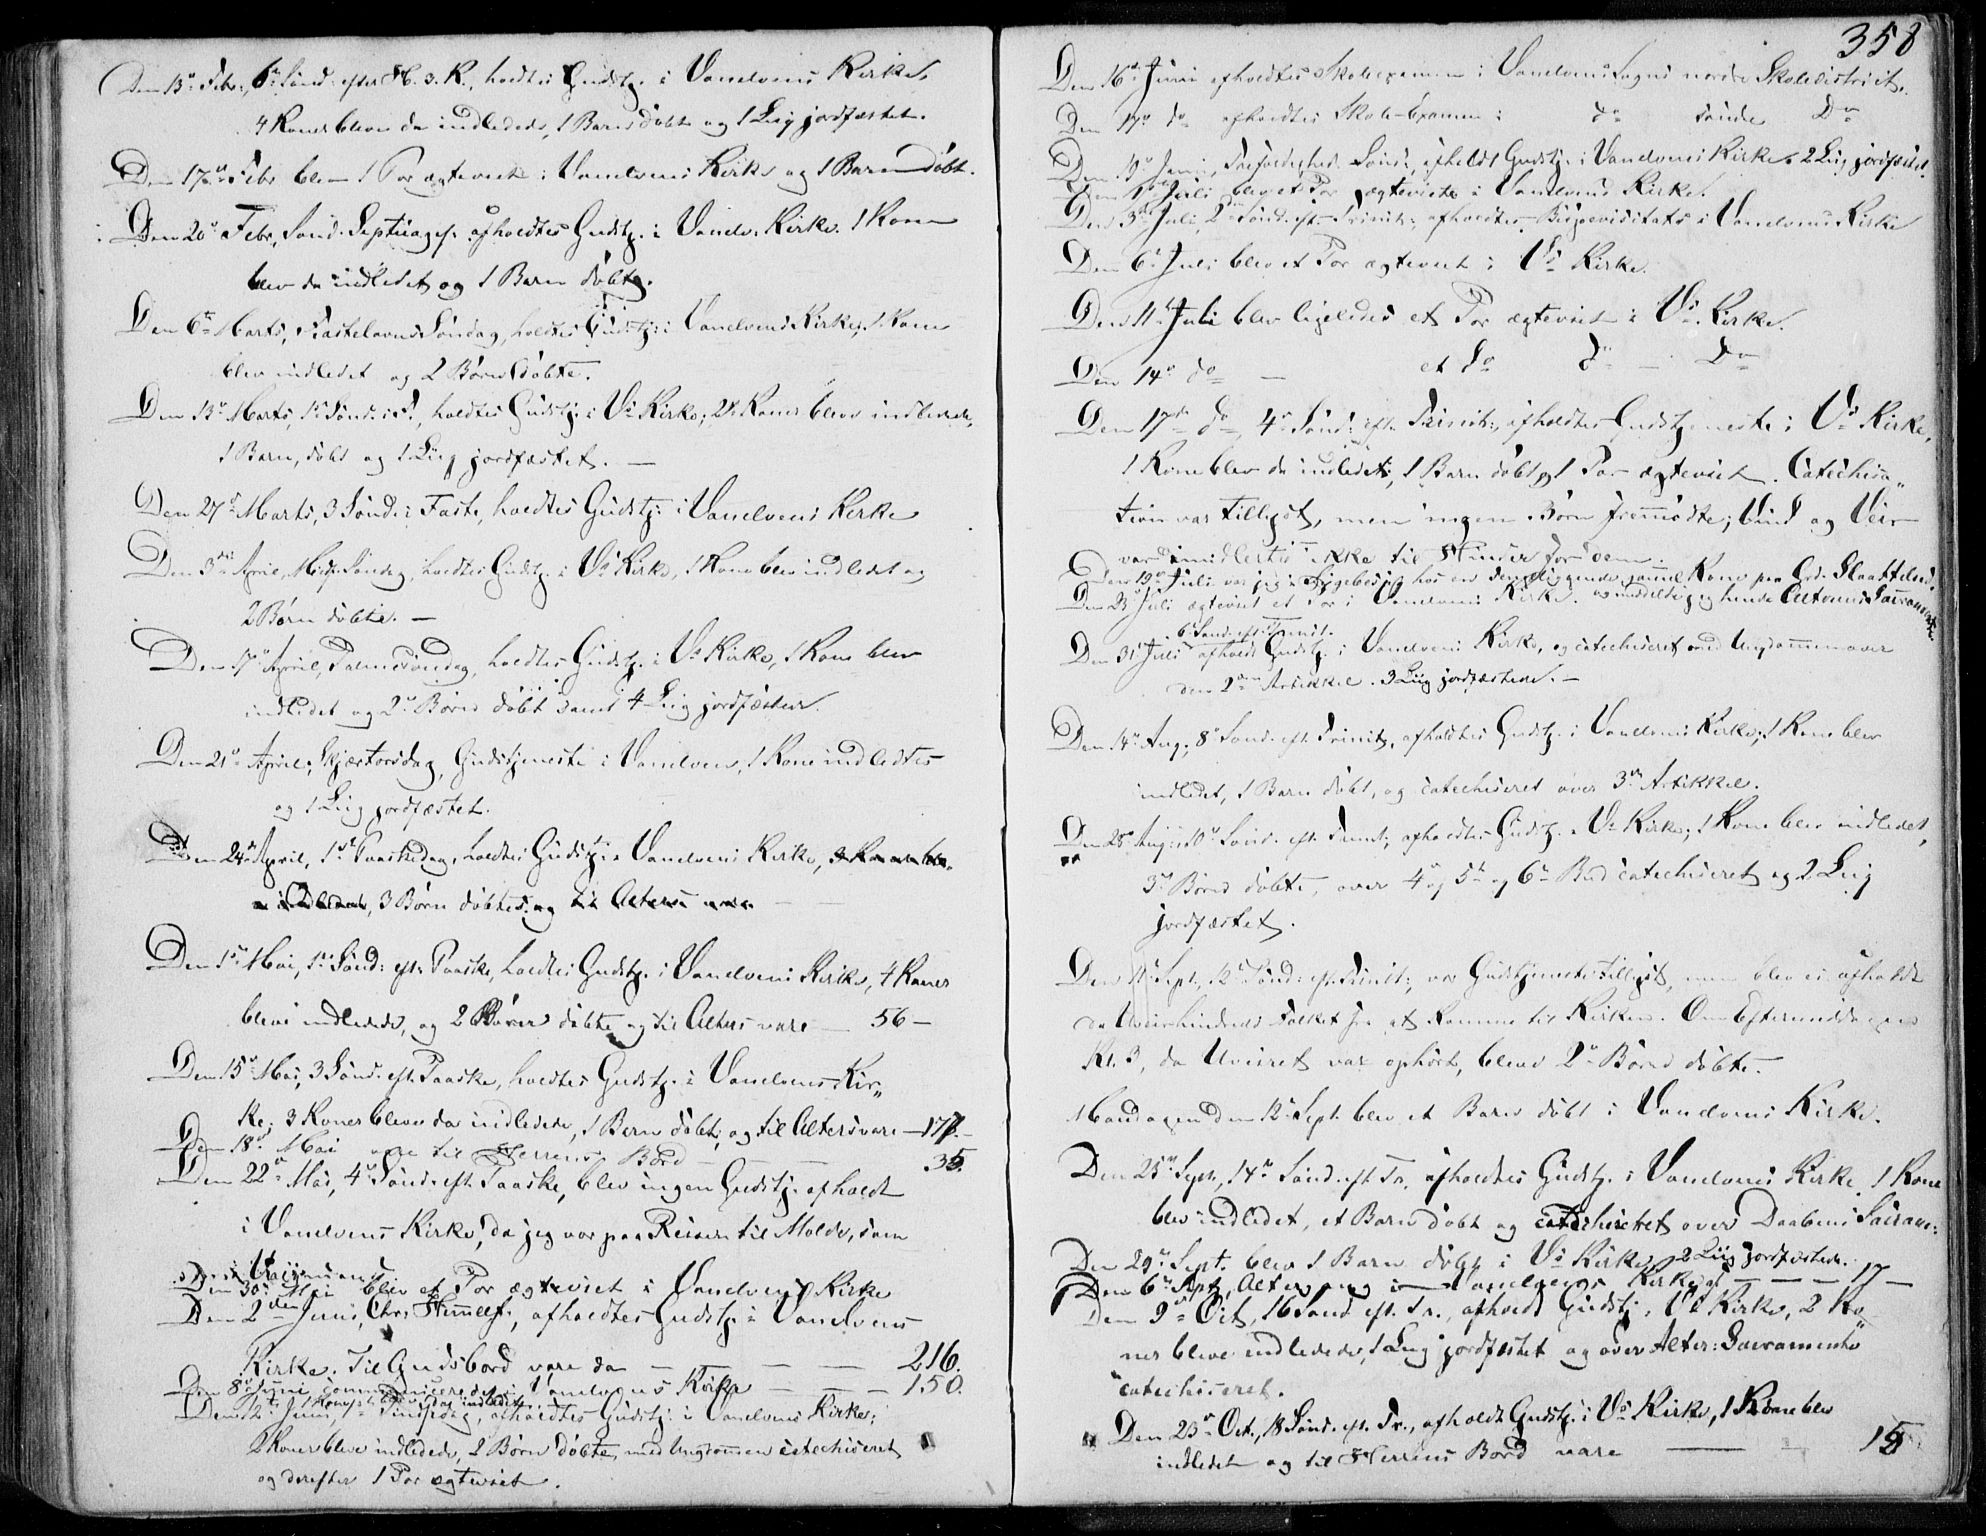 Den 13de Febr., 6te Sönd. efter H. 3. K., holdtes Gudstj. i Vanelvens Kirke.
4 Koner bleve da indledede, 1 Barn döbt og 1 Liig jordfæstet.
Den 17de Febr. blev 1 Par ægteviet i Vanelvens Kirke og 1 Barn döbt.
Den 20de Febr., Sönd. Septuages. afholdtes Gudstj. i Vanelv. Kirke. 1 Kone
blev da indledet og 1 Barn döbt.
Den 6te Marts, Fastelavns Söndag, holdtes Gudstj. i Vanelvens Kirke, 1 Kone
blev indledet og 2 Börn döbte.
Den 13de Marts, 1ste Sönd. i F., holdtes Gudstj. i Vs Kirke; 2 Koner bleve indledede,
1 Barn döbt og 1 Liig jordfæstet. —
Den 27de Marts, 3 Sönd. i Faste, holdtes Gudstj. i Vanelvens Kirke
Den 3die April, Midf. Söndag, holdtes Gudstj. i Vs Kirke, 1 Kone blev indledet og
2 Börn döbte. —
Den 17de April, Palmesöndag, holdtes Gudstj. i Vs Kirke, 1 Kone blev
indledet og 2 Börn döbt samt 4 Liig jordfæstede.
Den 21de April, Skjærtorsdag, Gudstjeneste i Vanelven, 1 Kone indledtes
og 1 Liig jordfæstet.
Den 24de April, 1ste Paaskedag, holdtes Gudstj. i Vanelvens Kirke,
3 Börn döbtes og til Alters vare —
Den 1ste Mai, 1ste Sönd. eft. Paaske, holdtes Gudstj. i Vanelvens Kirke, 4 Koner
bleve indledede, og 2 Börn döbte og til Alters vare — 56 —
Den 15de Mai, 3 Sönd. eft. Paaske, holdtes Gudstj. i Vanelvens Kir„
ke; 3 Koner bleve da indledede, 1 Barn döbt, og til Alters vare — 177. —
Den 18de Mai vare til Herrens Bord — — 35.
Den 22de Mai, 4de Sönd. eft. Paaske, blev ingen Gudstj. afholdt
i Vanelvens Kirke, da jeg var paa Reisen til Molde, som
Den 30te Mai blev et Par ægteviet i Vanelvens Kirke
Den 2den Juni, Chr. Himmelf., afholdtes Gudstj. i Vanelvens
Kirke. Til Guds bord vare da — — — 216.
Den 8de Juni communicerede i Vanelvens Kirke — — — 150.
Den 12te Juni, Pindsedag, afholdtes Gudstj. i Vanelvens Kirke;
2 Koner bleve indledede, 2 Börn döbte, med Ungdommen catechiseret
og derefter 1 Par ægteviet.
358
Den 16de Juni afholdtes Skoleexamen i Vanelvens Sogns nordre Skoledistrict.
Den 17de do afholdtes Skole-Examen i do söndre Do
Den 19de Juni, Trefoldigheds Sönd., afholdt Gudstj. i Vanelvens Kirke. 2 Liig jordfæstet.
Den 1ste Juli blev et Par ægteviede i Vanelvens Kirke.
Den 3die Juli, 2den Sönd. eft. Trinit., afholdtes Bispevisitats i Vanelvens Kirke
Den 6te Juli blev et Par ægteviet i Vs Kirke.
Den 11te Juli blev ligeledes et Par ægteviet i Vs Kirke.
Den 14de do — et Do do — Do
Den 17de do, 4de Sönd. eft. Trinit., afholdtes Gudstjeneste i Vs Kirke,
1 Kone blev da indledet, 1 Barn döbt og 1 Par ægteviet. Catechisa„
tion var tillyst, men ingen Börn fremmödte; Vind og Veir
var imidlertid ikke til Hinder for dem.
Den 19de Juli var jeg i Sygebesög hos en gammel Kone paa Grd. Slaattelid.
og meddelte jeg hende Alterens Sacramente
Den 23de Juli ægteviet et Par i Vanelvens Kirke.
6te Sönd. eft. Trinit.
Den 31te Juli afholdt Gudstj. i Vanelvens Kirke, og catechiseret med Ungdommen over
den 2den Artikkel. 3 Liig jordfæstede. —
Den 14de Aug., 8de Sönd. eft. Trinit., afholdtes Gudstj. i Vanelvens Kirke; 1 Kone blev
indledet, 1 Barn döbt, og catechiseret over 3die Artikkel.
Den 28de Aug., 10de Sönd. eft. Trinit., afholdtes Gudstj. i Vs Kirke; 1 Kone blev indledet,
3 Börn döbte, over 4de, 5te og 6te Bud catechiseret og 2 Liig
jordfæstet.
Den 11te Sept., 12te Sönd. eft. Trinit., var Gudstjeneste tillyst, men blev ei afholdt
da Uveir hindrede Folket fra at komme til Kirken. Om Eftermiddagen
Kl. 3, da Uveiret var ophört, bleve 2de Börn döbte. —
Mandagen den 12te Sept. blev et Barn döbt i Vanelvens Kirke.
Den 25de Sept., 14de Sönd. eft. Tr. afholdtes Gudstj. i Vanelvens Kirke. 1 Kone
blev indledet, et Barn döbt og catechiseret over Daabens Sacram:
Den 29de Sept. blev 1 Barn döbt i Vs Kirke, 2 Liig jordfæstede.
Den 6te Sept. Altergang i Vanelvens Kirke af — — — 17 —
Den 9de Oct., 16 Sönd. eft. Tr., afholdt Gudstj. i Vs Kirke, 2 Ko„
ner bleve indledede, 1 Liig jordfæstet og over Alter: Sacramente
catechiseret.
Den 23de Oct., 18 Sönd. eft. Tr., afholdt Gudstj. i Vs Kirke, 1 Kone blev
indledet og til Herrens Bord vare — 15